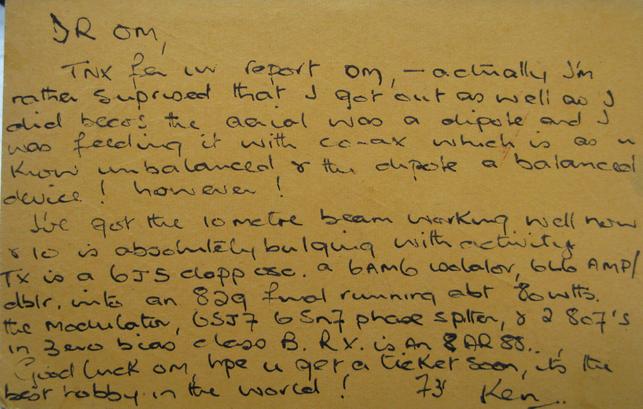 DR OM,
TNX fer ur report OM, – actually I'm
rather suprised that I got out as well as I
did becos the aerial was a dipole and I
was feeding it with co-ax which is as u
know unbalanced & the dipole a balanced
device! however!
I've got the 10 metre beam working well now
& 10 is absolutely bulging with activity
TX is a 6J5 clapp osc. a 6AM6 isolator, 6L6 AMP/
dblr. into an 829 final running abt 80 wtts.
the Modulator, 6SJ7 6SN7 phase spliter, & 2 807's
in Zero bias class B. RX. is An AR88...
Good luck OM, hpe u get a ticket soon, it's the
best hobby in the world! 73's Ken..